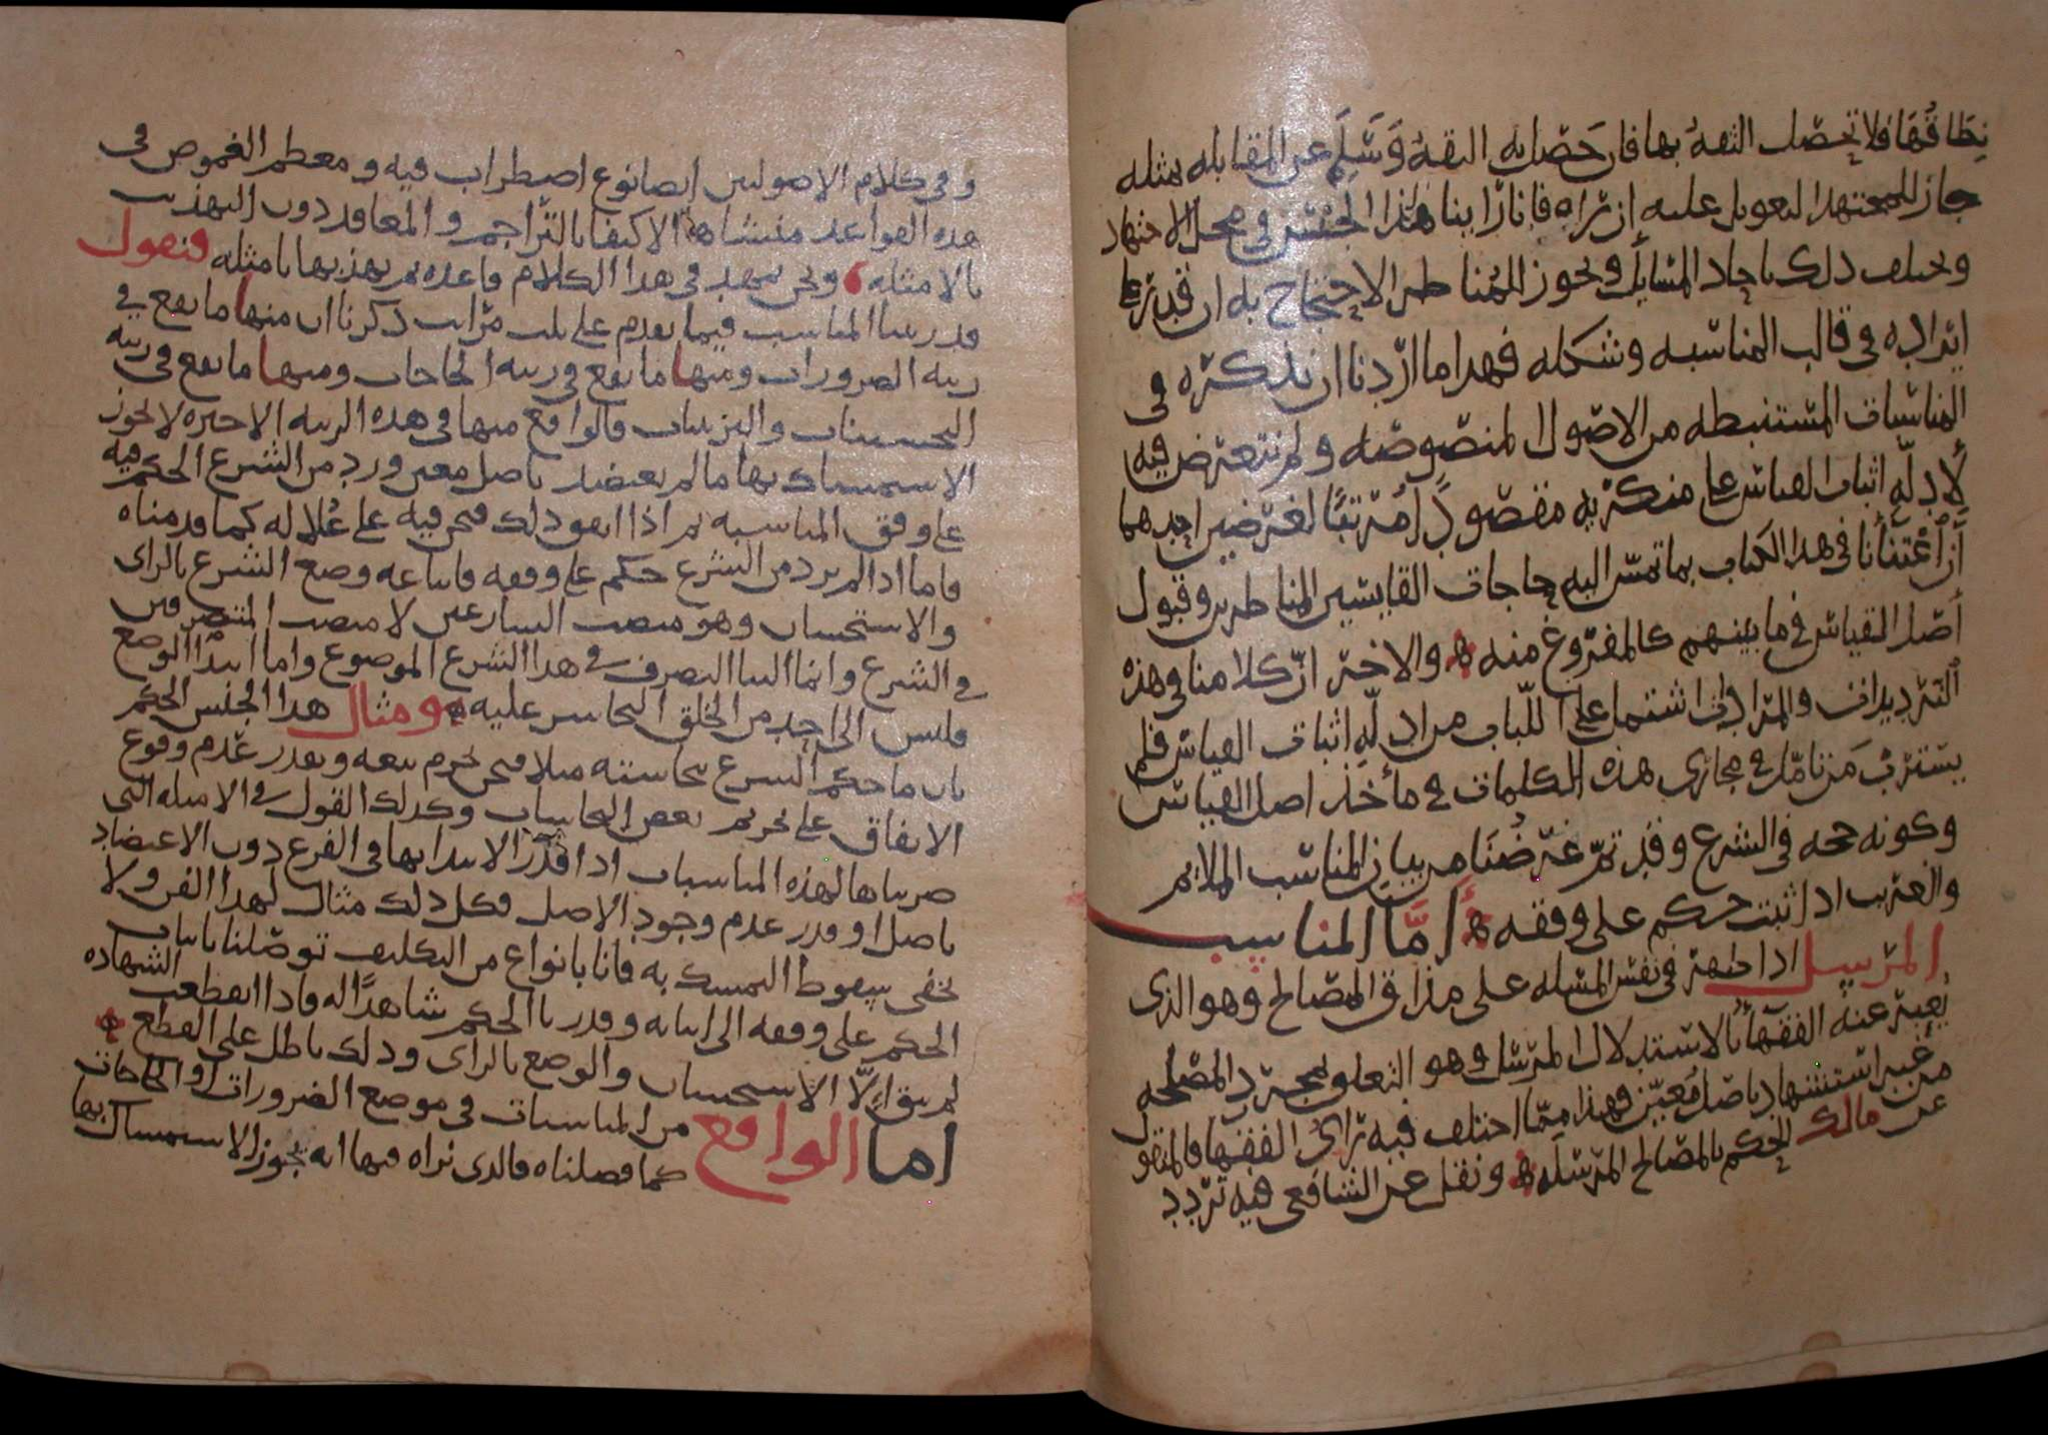 نطاقها فلا تحصل الثقة بها فان حصل به الثقة وسلم عن المقابله بمثله
جاز للمجتهد التعويل عليه ان راه فانا راينا هذا الجنس في محل الاجتهاد
ويختلف ذلك باحاد المسايل ويجوز للمناظر الاحتجاج به ان قدر على
ايراده في قالب المناسبه وشكله فهذا ما اردنا ان نذكره في
المناسبات المستنبطه من الاصول المنصوصه ولم نتعرض فيه
لادلة اثبات القياس على منكريه مقصودا مرتبا لغرضين احدهما
ان اعتنانا في هذا الكتاب بما تمس اليه حاجات القايسين المناظرين وقبول
اصل القياس فيما بينهم كالمفروغ منه ه والاخر ان كلامنا في هذه
الترديدات والمرادات اشتمل على اللباب من ادلة اثبات القياس فلم
يسترب من تامل في مجاري هذه الكلمات في مأخذ اصل القياس
وكونه حجه في الشرع وقد تم غرضنا من بيان المناسب الملايم
والغريب اذا ثبت حكم على وفقه ه أما المناسب
المرسل اذا ظهر في نفس المسله على مذاق المصالح وهو الذي
يعبر عنه الفقهاء بالاستدلال المرسل وهو التعلق بمجرد المصلحه
من غير استشهاد باصل معين فهذا مما اختلف فيه راى الفقها فالمنقول
عن مالك الحكم بالمصالح المرسله ه ونقل عن الشافعي فيه تردد
وفي كلام الاصوليين ايضا نوع اضطراب فيه ومعظم الغموض في
هذه القواعد منشاها الاكتفا بالتراجم والمعاقد دون التهذيب
بالامثله ه ونحن نمهد في هذا الكلام قاعده ثم نهذبها بامثله فنقول
قد رتبنا المناسب فيما تقدم على ثلث مراتب ذكرنا ان منها ما يقع في
رتبه الضرورات ومنها ما يقع في رتبه الحاجات ومنها ما يقع في رتبه
التحسينات والتزيينات فالواقع منها في هذه الرتبه الاخيره لا يجوز
الاستمساك بها ما لم يعتضد باصل معين ورد من الشرع الحكم فيه
على وفق المناسبه ثم اذا اتفق ذلك فنحن فيه على علالة كما قدمناه
فاما اذا لم يرد من الشرع حكم على وفقه فاتباعه وضع الشرع بالراي
والاستحسان وهو منصب الشارعين لا منصب المتصرفين
في الشرع وانما الينا التصرف في هذا الشرع الموضوع واما ابتدا الوضع
فليس الى احد من الخلق التجاسر عليه ه ومثال هذا الجنس الحكم
بان ما حكم الشرع بنجاسته مثلا فنحن نحرم بيعه ونقدر عدم وقوع
الاتفاق على تحريم بعض النجاسات وكذلك القول في الامثله التي
ضربناها لهذه المناسبات اذا قدر الابتدا بها في الفرع دون الاعتضاد
باصل او قدر عدم وجود الاصل فكل ذلك مثال لهذا الفن ولا
يخفى سقوط التمسك به فانا بانواع من التكليف توصلنا باثبات
الحكم على وفقه الى اثباته وقدرنا الحكم شاهدا له فاذا انقطعت الشهاده
لم يبق إلا الاستحسان والوضع بالراى وذلك باطل على القطع ه
اما الواقع من المناسبات في موضع الضرورات او الحاجات
كما فصلناه فالذى نراه فيها انه يجوز الاستمساك بها